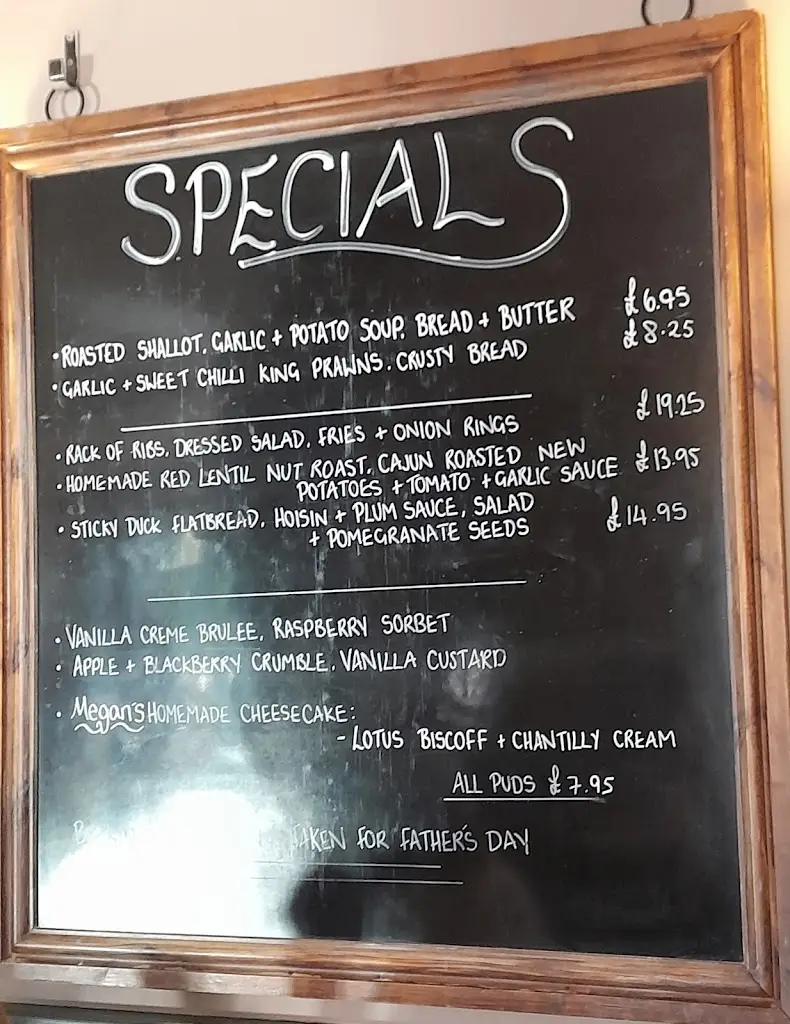 SPECIALS
• ROASTED SHALLOT, GARLIC + POTATO SOUP. BREAD + BUTTER £6.95
• GARLIC + SWEET CHILLI KING PRAWNS. CRUSTY BREAD £8.25
• RACK OF RIBS, DRESSED SALAD, FRIES + ONION RINGS £19.25
• HOMEMADE RED LENTIL NUT ROAST, CAJUN ROASTED NEW
POTATOES + TOMATO + GARLIC SAUCE £13.95
• STICKY DUCK FLATBREAD, HOISIN + PLUM SAUCE, SALAD
+ POMEGRANATE SEEDS £14.95
• VANILLA CREME BRULEE, RASPBERRY SORBET
• APPLE + BLACKBERRY CRUMBLE, VANILLA CUSTARD
• Megan's HOMEMADE CHEESECAKE:
- LOTUS BISCOFF + CHANTILLY CREAM
ALL PUDS £7.95
TAKEN FOR FATHER'S DAY